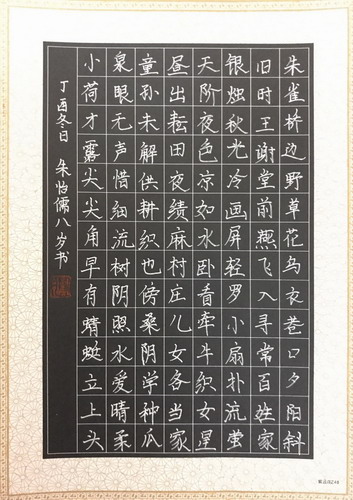 朱雀桥边野草花乌衣巷口夕阳斜
旧时王谢堂前燕飞入寻常百姓家
银烛秋光冷画屏轻罗小扇扑流萤
天阶夜色凉如水卧看牵牛织女星
昼出耘田夜绩麻村庄儿女各当家
童孙未解供耕织也傍桑阴学种瓜
泉眼无声惜细流树阴照水爱晴柔
小荷才露尖尖角早有蜻蜓立上头
丁酉冬日 朱怡儒八岁书